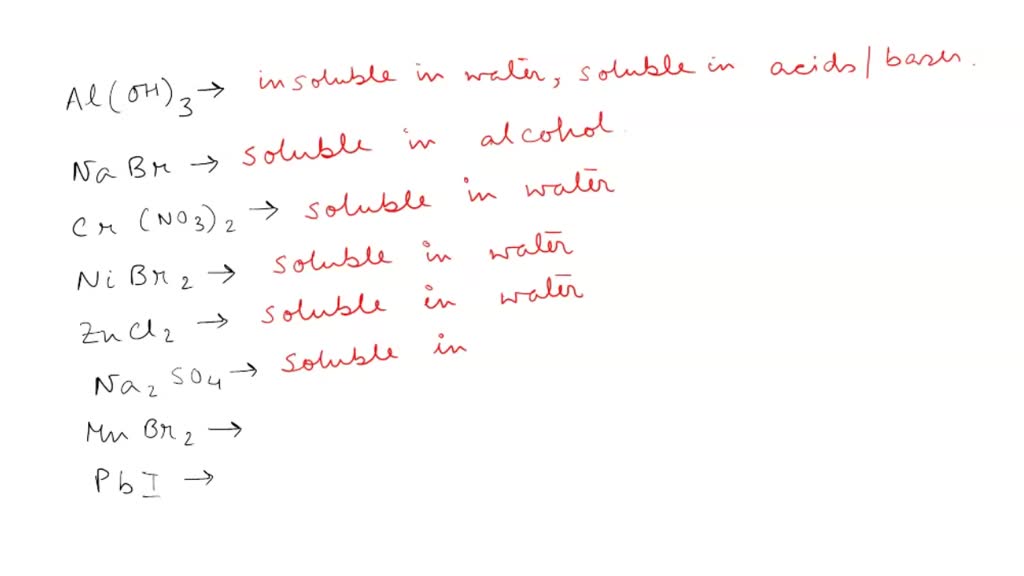 Al(OH)3 → insoluble in water, soluble in acids/bases.
NaBr → soluble in alcohol
Cr(NO3)2 → soluble in water
NiBr2 → soluble in water
ZnCl2 → soluble in water
Na2SO4 → soluble in
MnBr2 →
PbI →